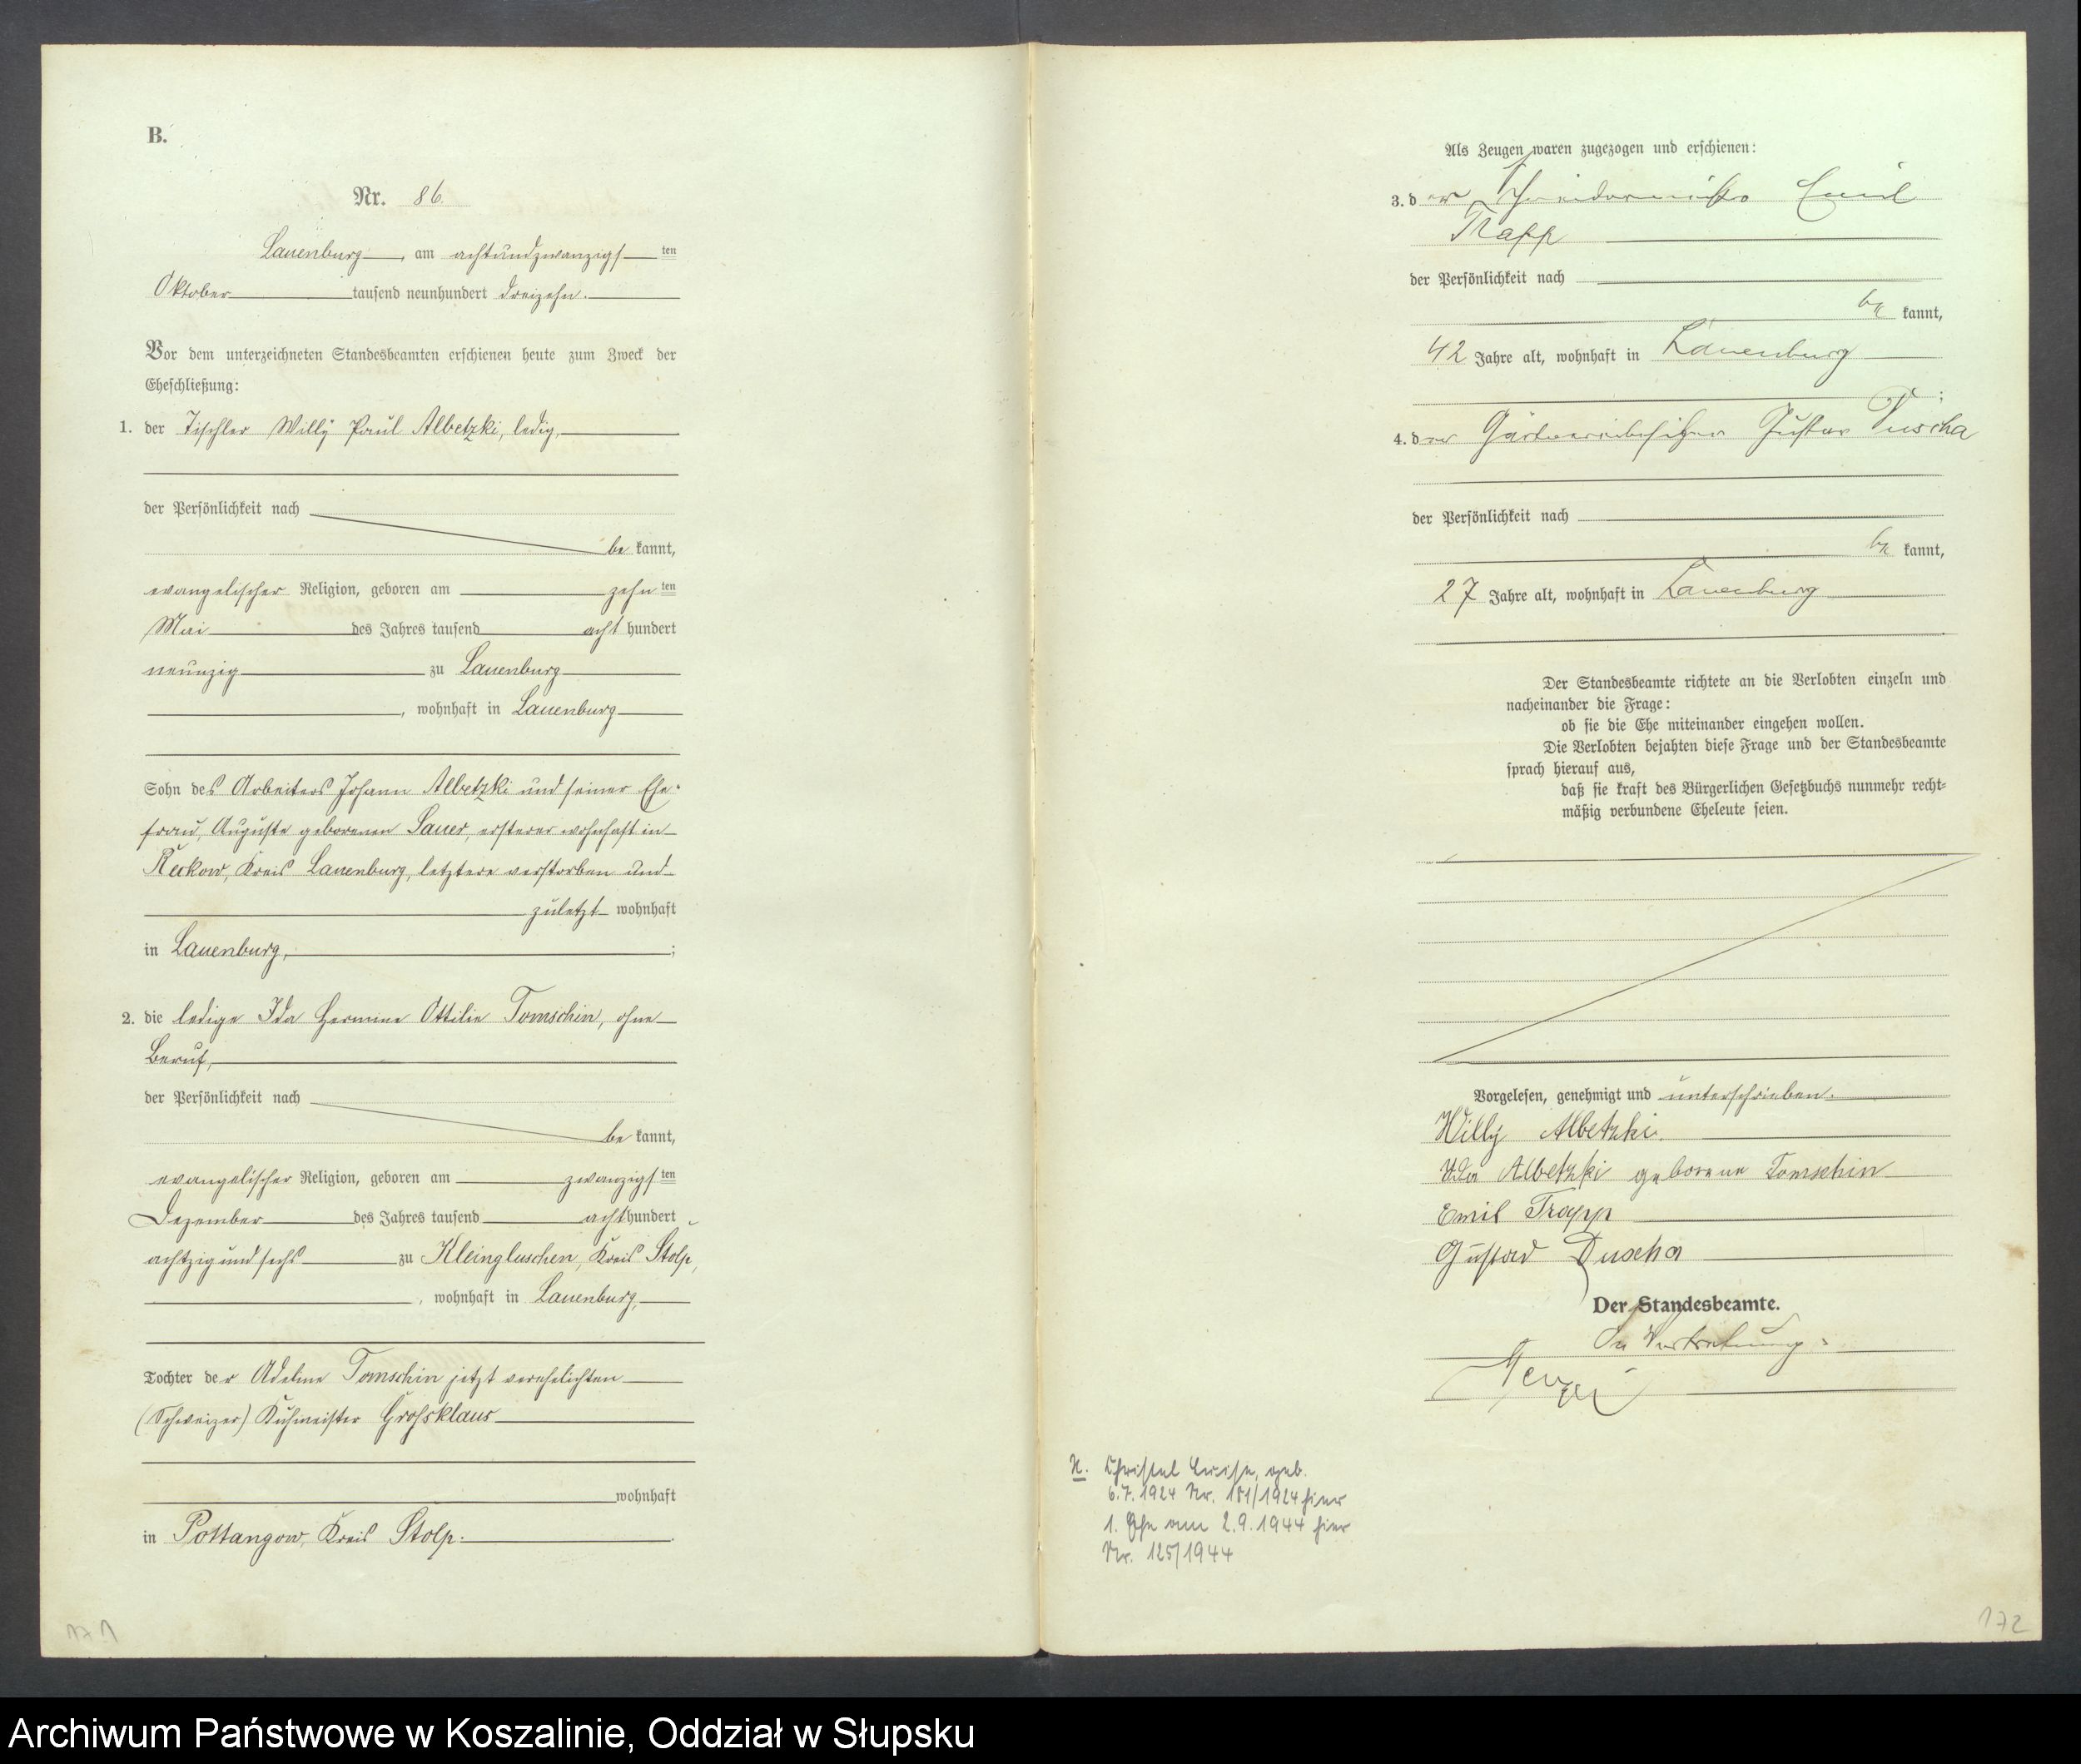 B.
Nr. 86.
Lauenburg, am achtundzwanzigsten
Oktober tausend neunhundert dreizehn.
Vor dem unterzeichneten Standesbeamten erschienen heute zum Zweck der
Eheschließung:
1. der Tischler Willy Paul Albetzki, ledig,
der Persönlichkeit nach
be kannt,
evangelischer Religion, geboren am zehn ten
Mai des Jahres tausend acht hundert
neunzig zu Lauenburg
, wohnhaft in Lauenburg
Sohn des Arbeiters Johann Albetzki und seiner Ehe-
frau, Auguste geborenen Sauer, ersterer wohnhaft in
Reckow, Kreis Lauenburg, letztere verstorben und
zuletzt wohnhaft
in Lauenburg, ;
2. die ledige Ida Hermine Ottilie Tomschin, ohne
Beruf,
der Persönlichkeit nach
be kannt,
evangelischer Religion, geboren am zwanzigsten
Dezember des Jahres tausend acht hundert
achtzig und sechs zu Kleingluschen, Kreis Stolp,
, wohnhaft in Lauenburg,
Tochter der Adeline Tomschin jetzt verehelichten
(Schweizer) Kuhmeister Großklaus
wohnhaft
in Pottangow, Kreis Stolp.
171
Als Zeugen waren zugezogen und erschienen:
3. der Schneidermeister Emil
Trapp
der Persönlichkeit nach
be kannt,
42 Jahre alt, wohnhaft in Lauenburg
;
4. der Gärtnereibesitzer Gustav Duscha
der Persönlichkeit nach
be kannt,
27 Jahre alt, wohnhaft in Lauenburg
Der Standesbeamte richtete an die Verlobten einzeln und
nacheinander die Frage:
ob sie die Ehe miteinander eingehen wollen.
Die Verlobten bejahten diese Frage und der Standesbeamte
sprach hierauf aus,
daß sie kraft des Bürgerlichen Gesetzbuchs nunmehr recht-
mäßig verbundene Eheleute seien.
Vorgelesen, genehmigt und unterschrieben.
Willy Albetzki.
Ida Albetzki geborene Tomschin
Emil Trapp
Gustav Duscha
Der Standesbeamte.
In Vertretung:
K. Christel Luise, geb.
6.7.1924 Nr. 151/1924 hier
1. Ehe am 2.9.1944 hier
Nr. 125/1944
172
Archiwum Państwowe w Koszalinie, Oddział w Słupsku